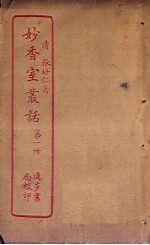 清 張培仁著
妙香室叢話
第一冊
進步書
局校印